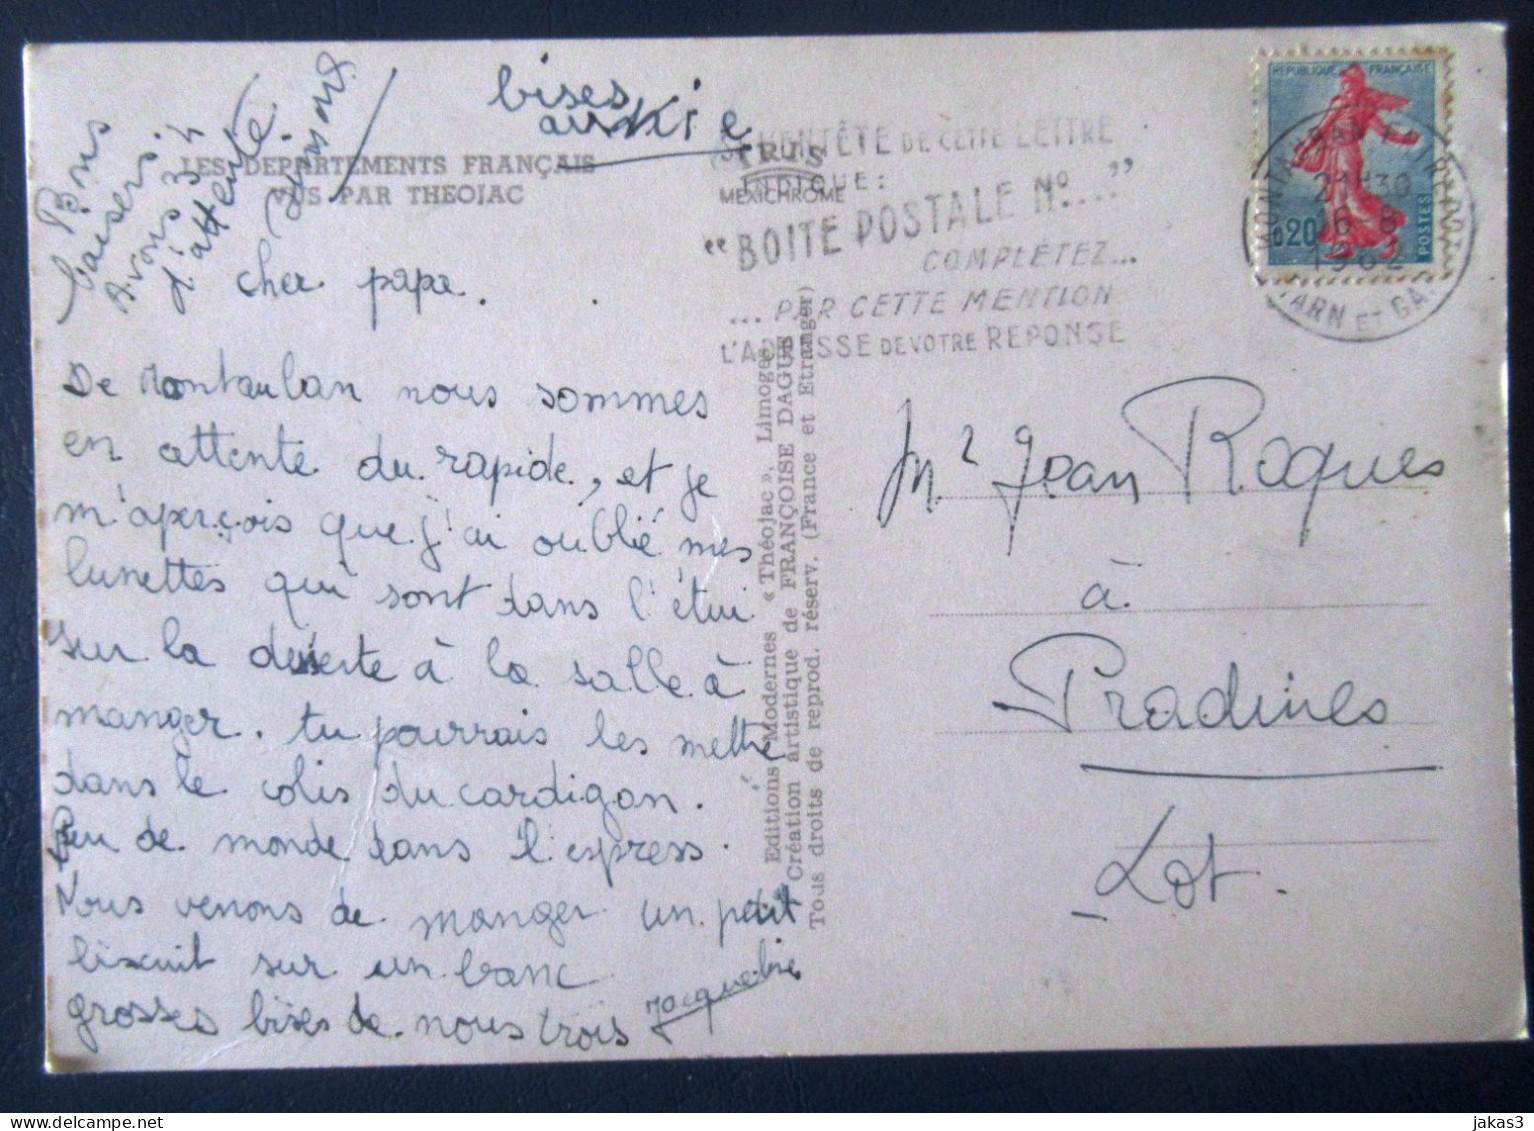 Bons
baisers
Avons 3 h
d'attente.
bises
LES DEPARTEMENTS FRANÇAIS
VUS PAR THEOJAC
MEXICHROME
cher papa.
De Montauban nous sommes
en attente du rapide, et je
m'aperçois que j'ai oublié mes
lunettes qui sont dans l'étui
sur la desserte à la salle à
manger. tu pourrais les mettre
dans le colis du cardigan.
Peu de monde dans l'express.
Nous venons de manger un petit
biscuit sur un banc
grosses bises de nous trois
Editions Modernes « Théojac », Limoges
Création artistique de FRANÇOISE DAGUE
Tous droits de reprod. réserv. (France et Etranger)
SI L'ENTÊTE DE CETTE LETTRE
INDIQUE:
"BOITE POSTALE No...."
COMPLETEZ...
... PAR CETTE MENTION
L'ADRESSE DE VOTRE REPONSE
REPUBLIQUE FRANÇAISE
0,20
POSTES
21H30
16-8
1962
TARN ET GAR.
Mr Jean Roques
à
Pradines
Lot.
jakas3